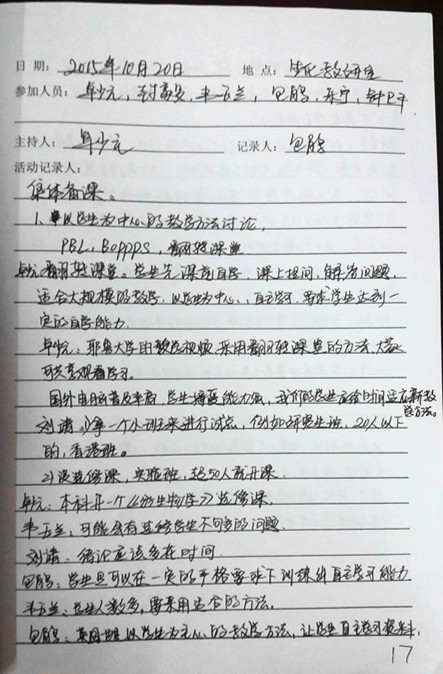 日 期: 2015年10月20日 地 点: 生化教研室
参加人员: 卓少元, 封家安, 韦玉兰, 包鹏, 乐宁, 钟卫干
主持人: 卓少元 记录人: 包鹏
活动记录人:
集体备课。
1. 以学生为中心的教学方法讨论,
PBL, BOPPPS, 翻转课堂
翻转课堂。学生先课前自学, 课上提问, 解答问题,
适合大规模的教学, 以学生为中心, 自主学习, 要求学生达到一
定的自学能力.
耶鲁大学用教学视频采用翻转课堂的方法, 大家
可共享观看学习.
国外电脑普及率高, 学生接受能力强, 我们的学生应给时间适应新教
学方法。
刘靖: 1) 拿一个小班来进行试点, 例如研究生班, 20人以下
的, 香港班。
2) 漫选修课, 实验班, 超50人就开课.
本科开一个《微生物学》选修课.
韦玉兰, 可能会有选修学生不够多的问题.
刘靖: 绪论应该多在时间
包鹏: 学生只可以在一定的严格要求下训练出自主学习能力
韦玉兰: 学生人数多, 要采用适合的方法.
包鹏: 采用以学生为中心的教学方法, 让学生自主学习资料,
17